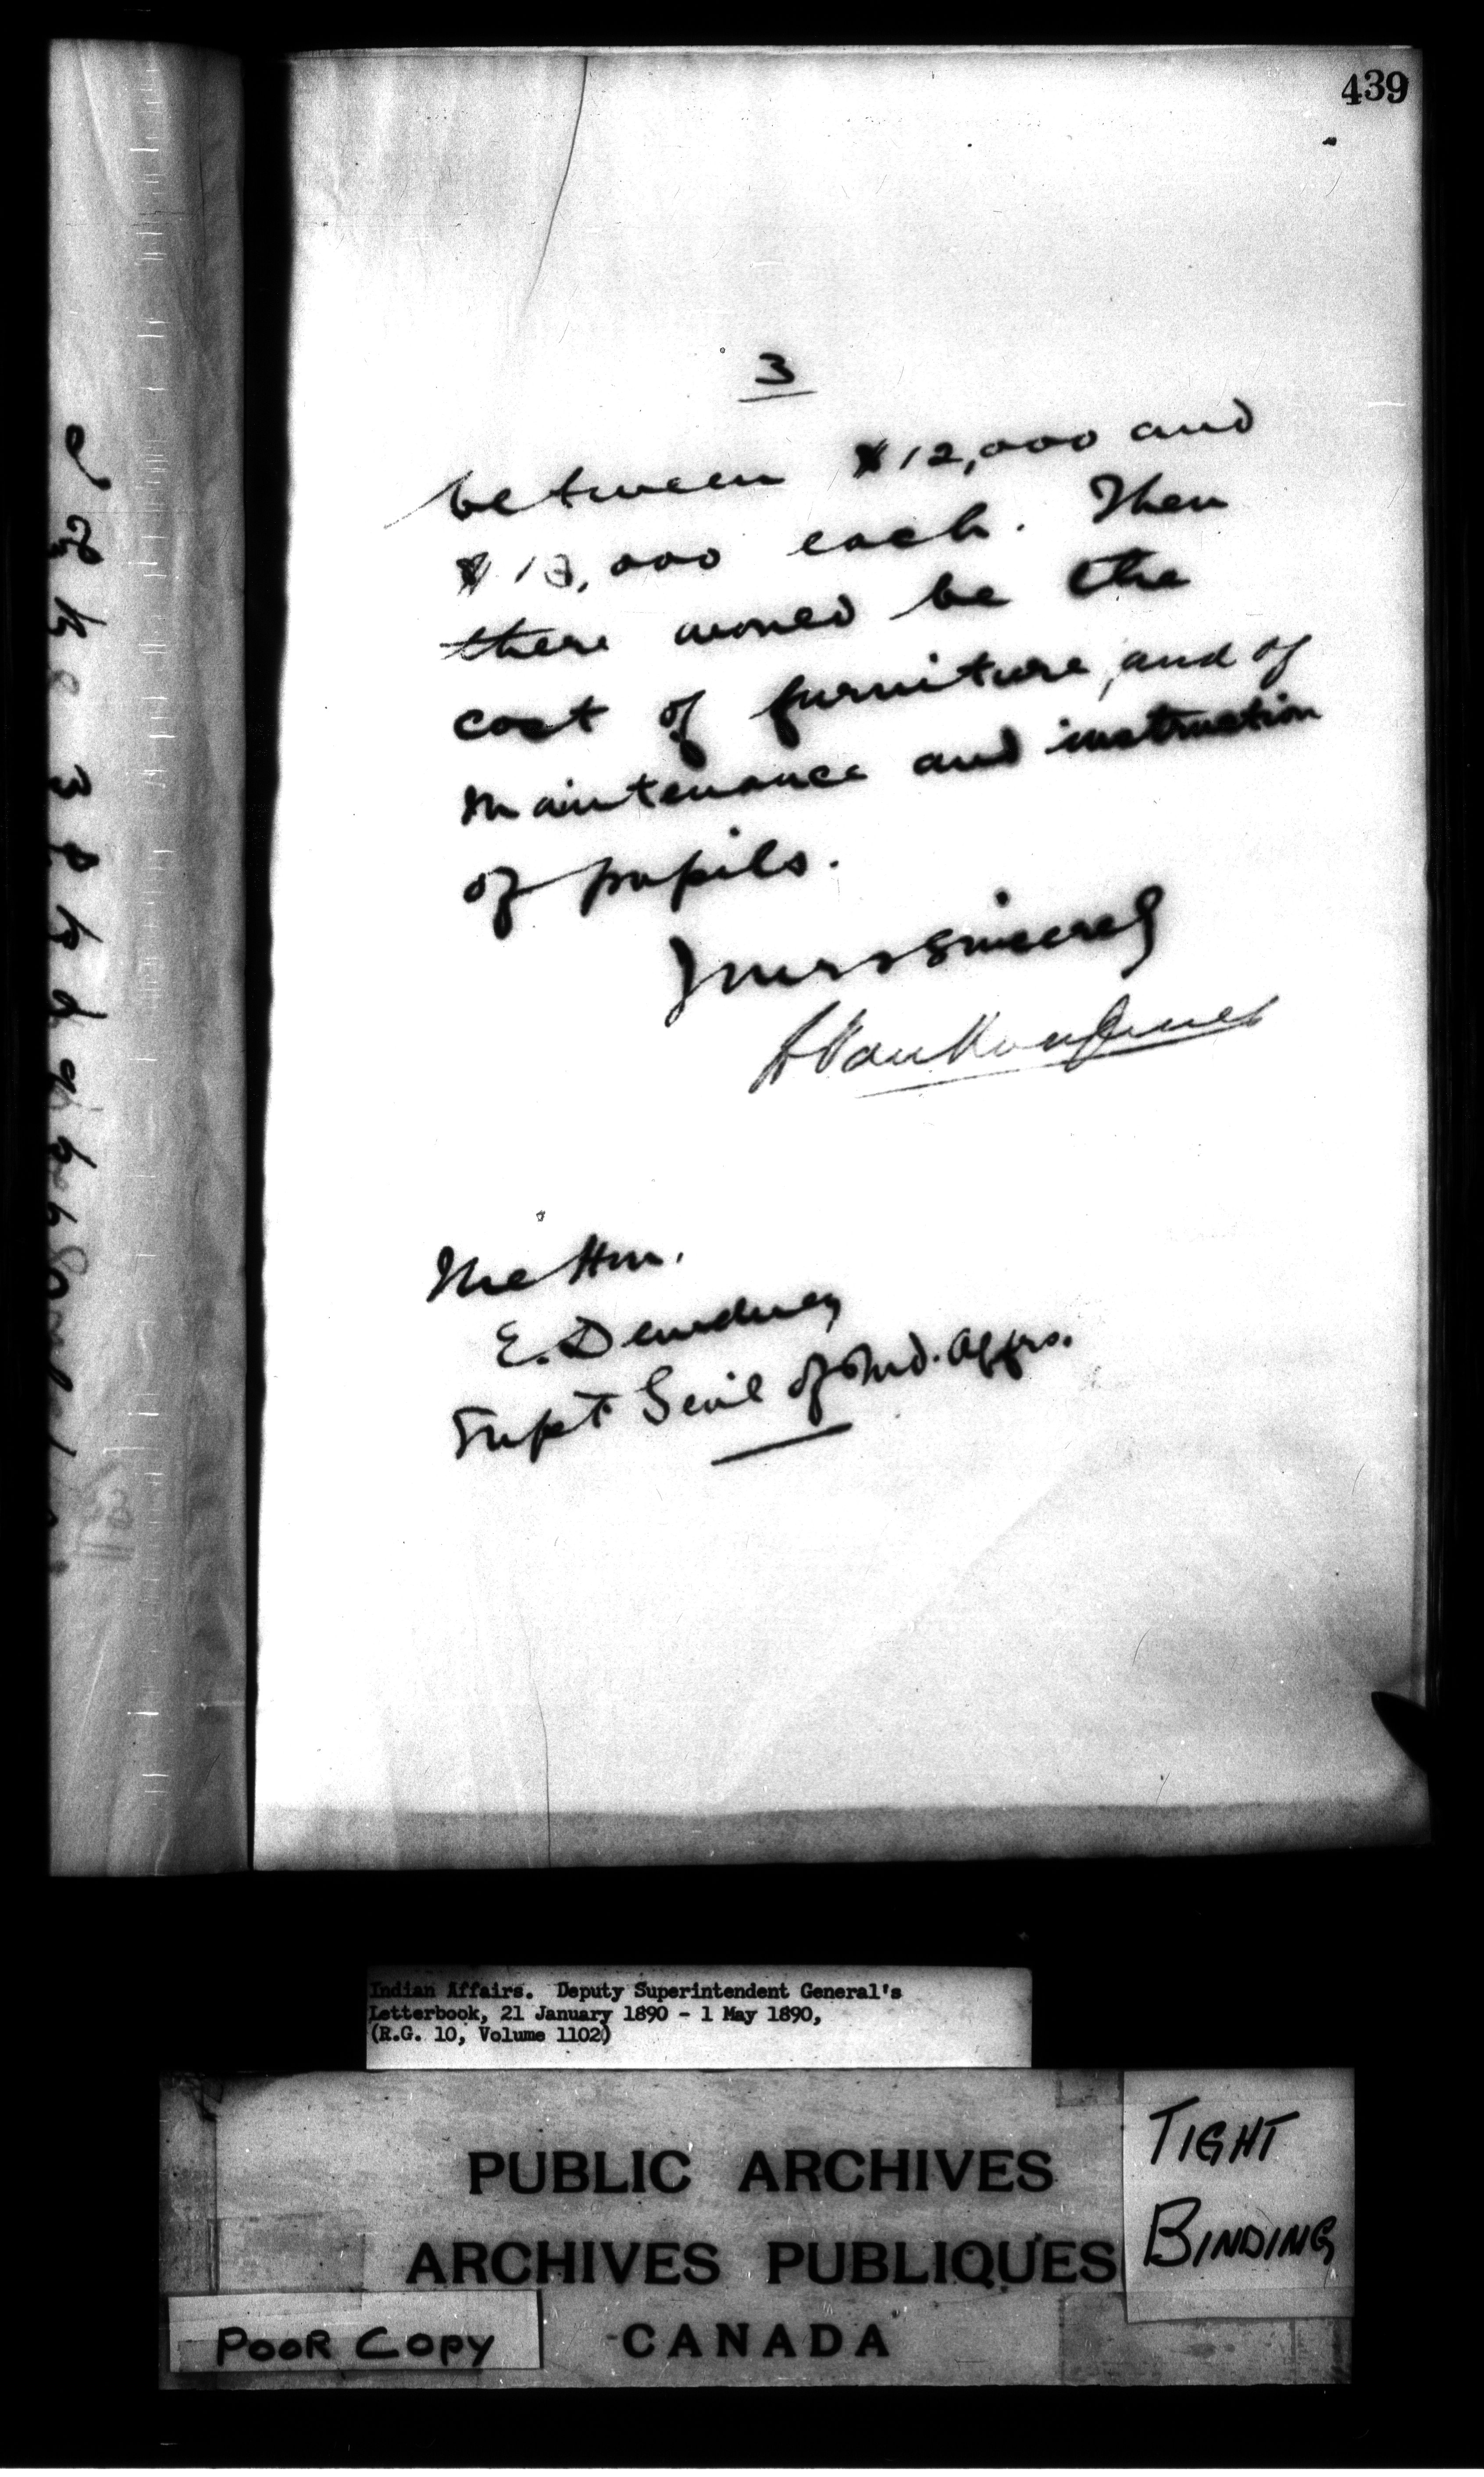 439
3
between $12,000 and
$13,000 each. Then
there would be the
cost of furniture, and of
maintenance and instruction
of pupils.
Yours sincerely
L Vankoughnet
The Hon.
E. Dewdney
Supt Genl of Ind. Affrs.
Indian Affairs. Deputy Superintendent General's
Letterbook, 21 January 1890 - 1 May 1890,
(R.G. 10, Volume 1102)
PUBLIC ARCHIVES
ARCHIVES PUBLIQUES
CANADA
TIGHT
BINDING
POOR COPY